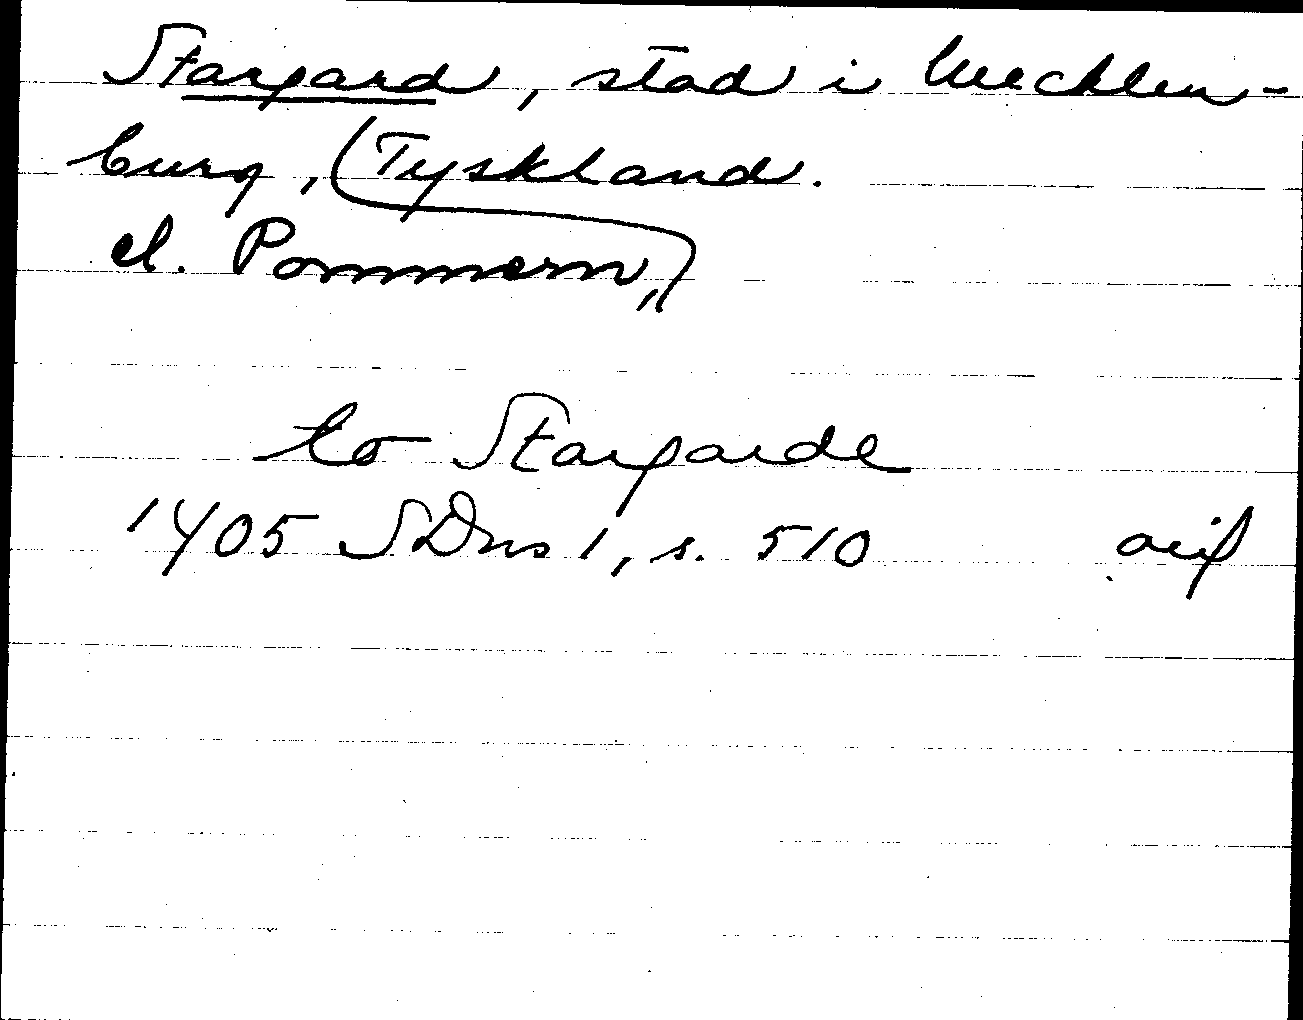 Stargard, stad i Mecklen-
burg, Tyskland.
el. Pommern,
to Stargarde
1405 SDns 1, s. 510